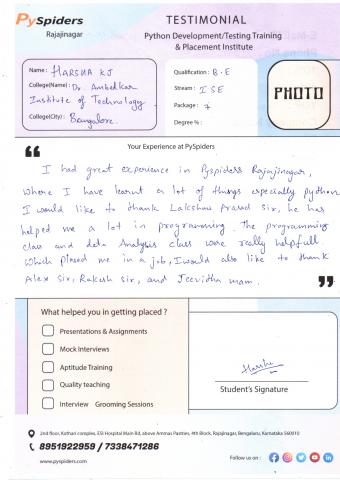 PySpiders
Rajajinagar
TESTIMONIAL
Python Development/Testing Training
& Placement Institute
Name : HARSHA KJ
College(Name) : Dr. Ambedkar
Institute of Technology
College(City) : Bangalore.
Qualification : B.E
Stream : ISE
Package : 7
Degree % :
PHOTO
Your Experience at PySpiders
“
I had great experience in Pyspiders Rajajinagar,
where I have learnt a lot of things especially python
I would like to thank Lakshmi Prasad sir, he has
helped me a lot in programming. The programming
class and data Analysis class were really helpfull.
Which placed me in a job, I would also like to thank
Alex sir, Rakesh sir, and Jeevidha mam.
”
What helped you in getting placed ?
Presentations & Assignments
Mock Interviews
Aptitude Training
Quality teaching
Interview Grooming Sessions
Harsha
Student's Signature
2nd floor, Kothari complex, ESI Hospital Main Rd, above Ammas Pastries, 4th Block, Rajajinagar, Bengaluru, Karnataka 560010
8951922959 / 7338471286
www.pyspiders.com
Follow us on :